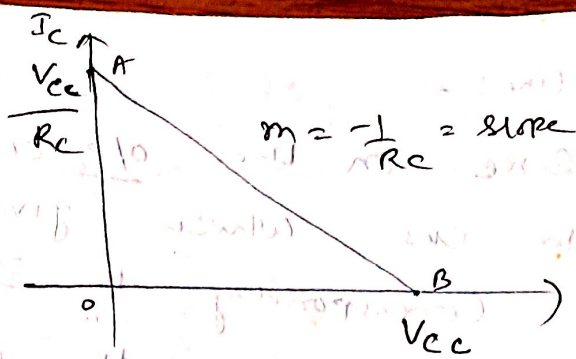 Ic
Vcc A
Rc
m = -1/Rc = slope
B
0
Vcc